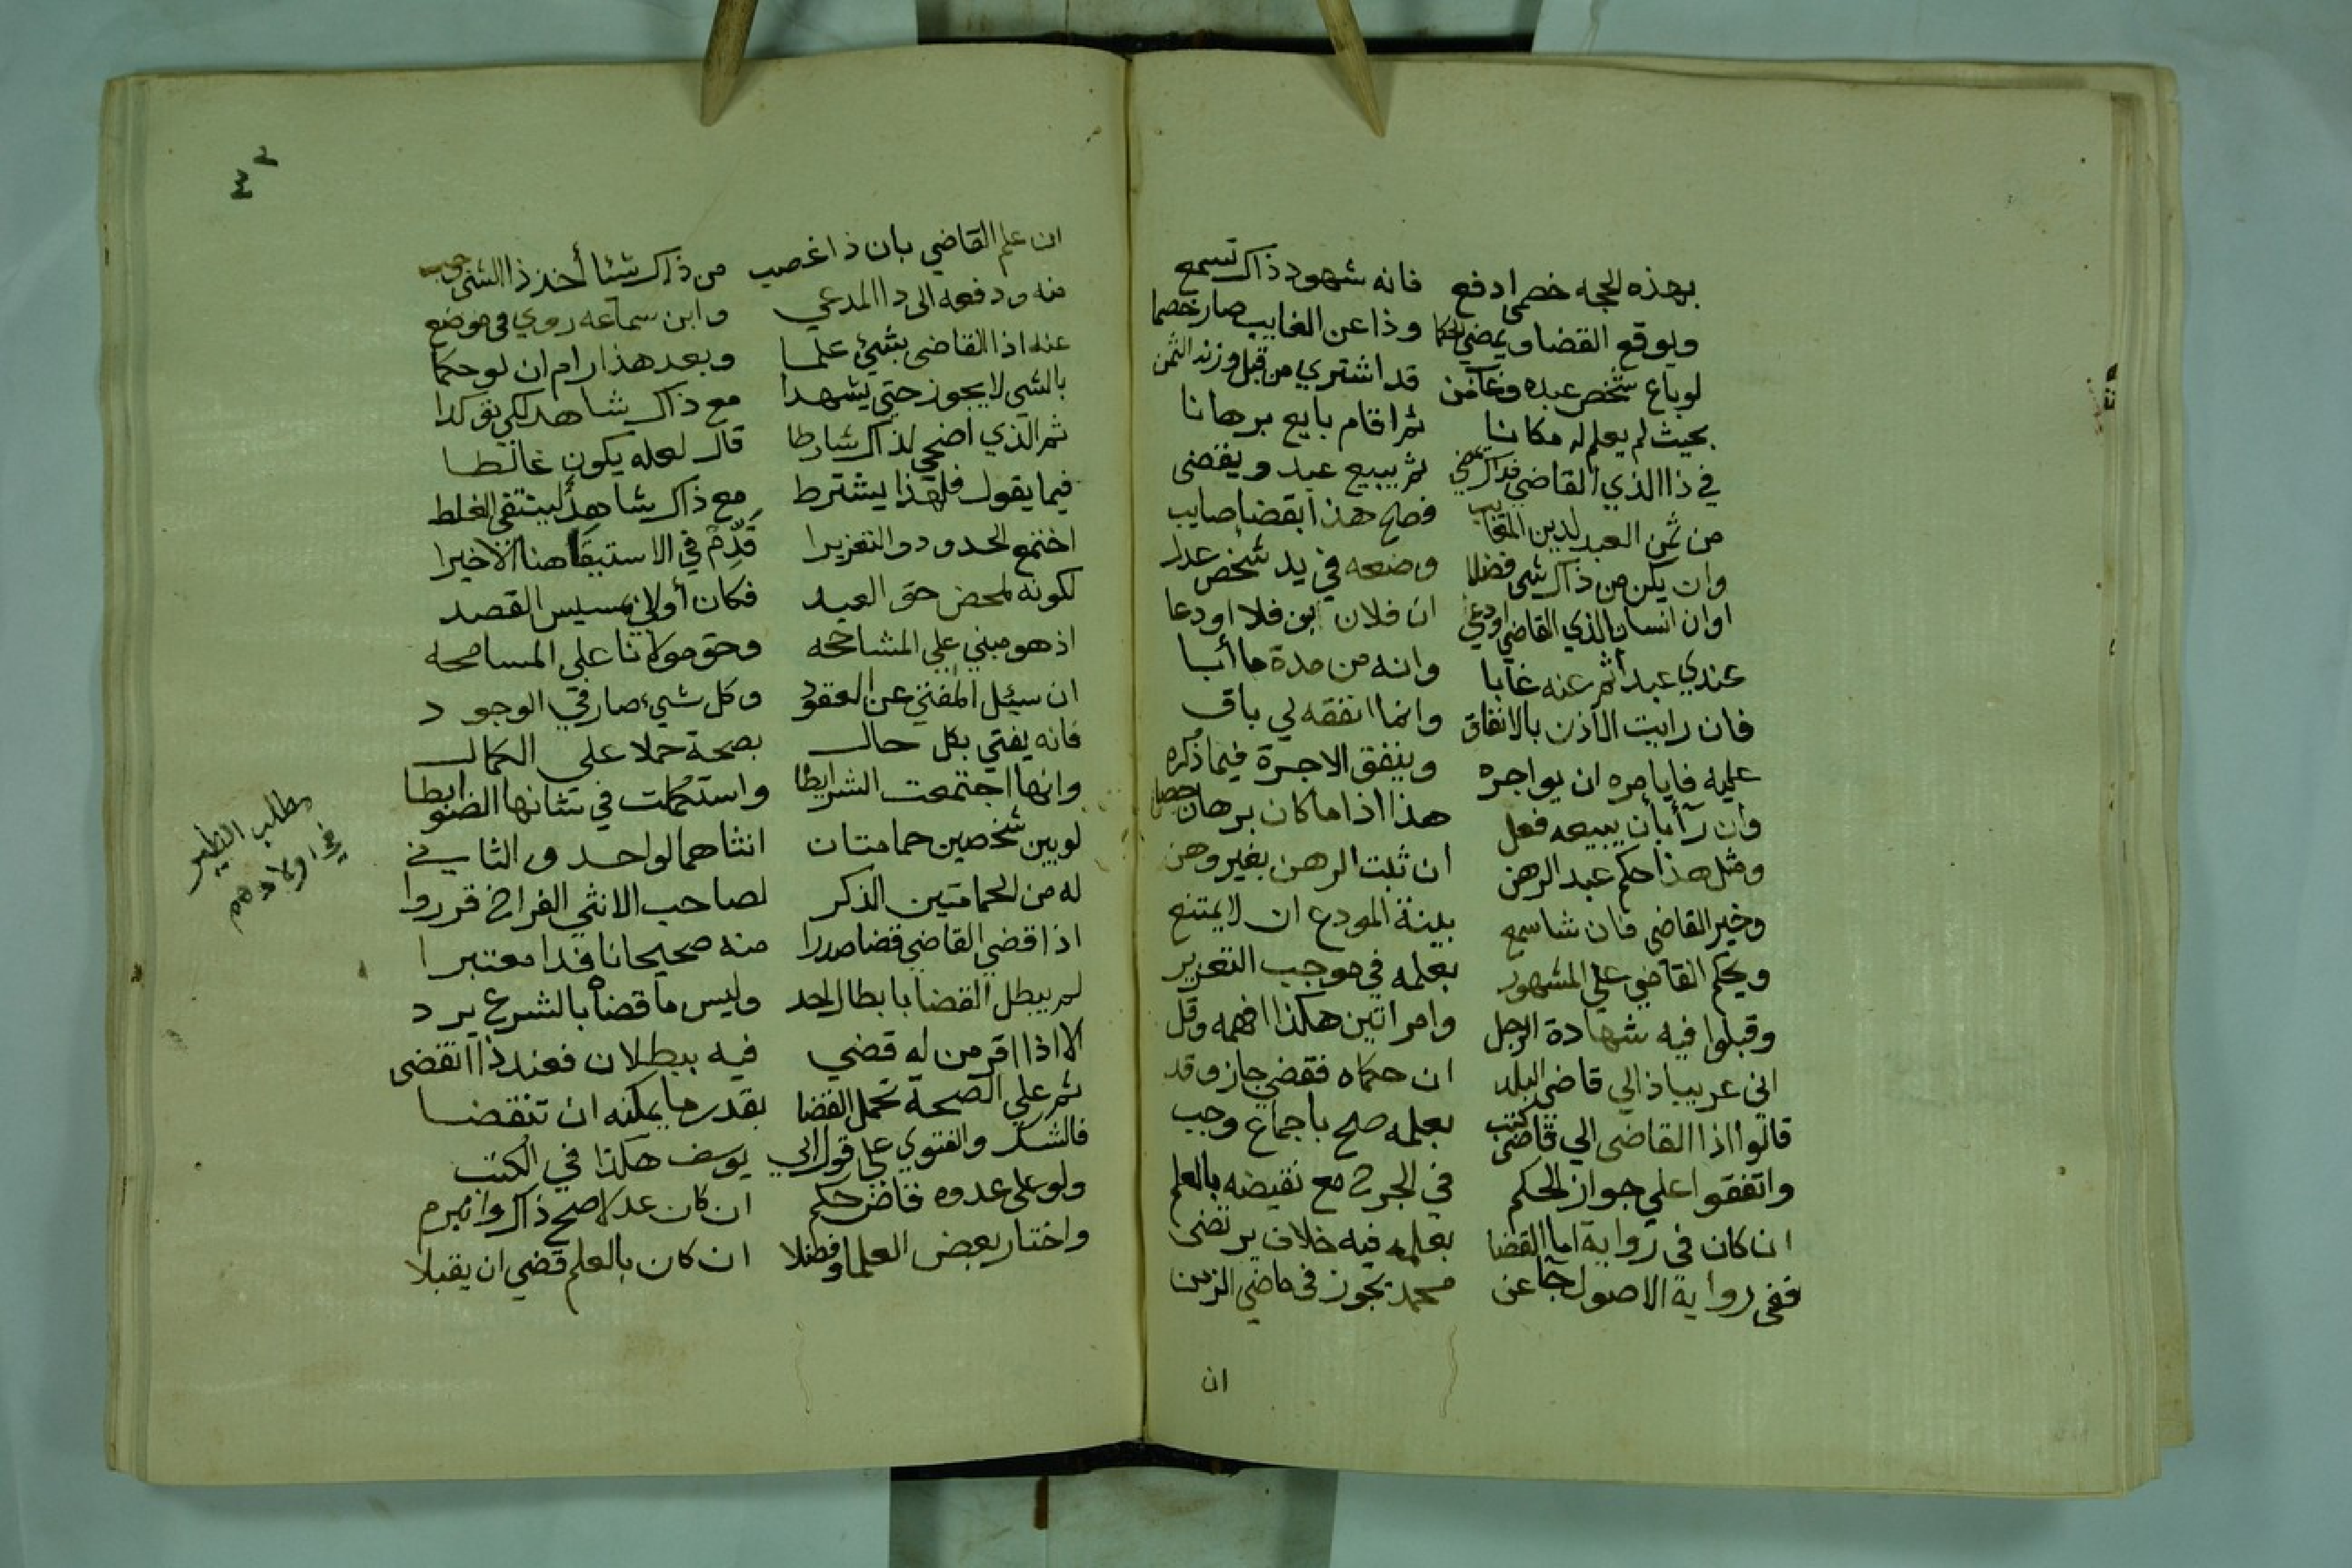 بهذه الحجه خصمي ادفع فانه شهود ذاك تسمع
ويوقع القضا ويمضي الحكما وذا عن الغايب صار خصما
لو باع شخص عبده وغاب من قد اشتري من قبل وزنه الثمن
بحيث لم يعلم له مكانا ثم اقام بايع برهانا
في ذا الذي القاضي يمضي ثم يبيع عبد ويقضى
من ثمن العبد لدين فصح هذا بقضا صايب
وان يكن من ذاك شي فضلا وضعه في يد شخص عدلا
او ان انسانا لذي القاضي ادعي ان فلان ابن فلا اودعا
عندي عبدا ثم عنه غابا وانه من مدة ما أبا
فان رايت الاذن بالانفاق وانما انفقه لي باق
عليه فايامره ان يواجره وينفق الاجرة فيما ذكره
وان رآ بان يبيعه فعل هذا اذا ما كان برهان حصل
ومثل هذا حكم عبد الرهن ان ثبت الرهن بغير وهن
وخير القاضي فان شا سمع بينة المودع ان لا يمتنع
ويحكم القاضي علي المشهور بعلمه في موجب التعزير
وقبلوا فيه شهادة الرجل وامراتين هكذا افهمه وقل
ان حكماه فقضي جاز وقد اني غريبا ذا الي قاضي البلد
قالوا اذا القاضي الي قاضي كتب بعلمه صح باجماع وجب
واتفقوا علي جواز الحكم في الجرح مع نقيضه بالعلم
ان كان في رواية اما القضا بعلمه فيه خلاف يرتضى
ففي رواية الاصول جا عن محمد يجوز في ماضي الزمن
ان
ان علم القاضي بان ذا غصب من ذاك شئا أخذ ذا الشي وجب
منه ودفعه الى ذا المدعي وابن سماعه روي في موضع
عنه اذا القاضي بشئ علما وبعد هذا رام ان لو حكما
بالشي لا يجوز حتي يشهدا مع ذاك شاهد لكي يوكدا
ثم الذي اضحي لذاك شارطا قال لعله يكون غالطا
فيما يقول فلهذا يشترط مع ذاك شاهد لينتفي الغلط
اجتمع الحدود والتعزيرا قدم في الاستبقا هنا الاخيرا
لكونه لمحض حق العبد فكان أولي بمسيس القصد
اذ هو مبني علي المشاححه وحق مولانا علي المسامحه
ان سيئل المفتي عن العقود وكل شيء صار في الوجود
فانه يفتي بكل حال بصحة حملا علي الكمال
وانها اجتمعت الشرايطا واستحكمت في شانها الضوابطا
لو بين شخصين حمامتان انثاهما لواحد والثاني
له من الحمامتين الذكر لصاحب الانثي الفراخ قرروا
اذا قضي القاضي قضا صدرا منه صحيحا نافذا معتبرا
لم يبطل القضا بابطال احد وليس ما قضاه بالشرع يرد
الا اذا اقر من له قضي فيه ببطلان فعند ذا انقضى
ثم علي الصحة تحمل القضا بقدر ما يمكنه ان تنقضا
فالشكر والفتوي علي قول ابي يوسف هكذا في الكتب
ولو على عدوه قاض حكم ان كان عدلا صح ذاك وانبرم
واختار بعض العلما وفضلا ان كان بالعلم قضي ان يقبلا
مطلب الطير